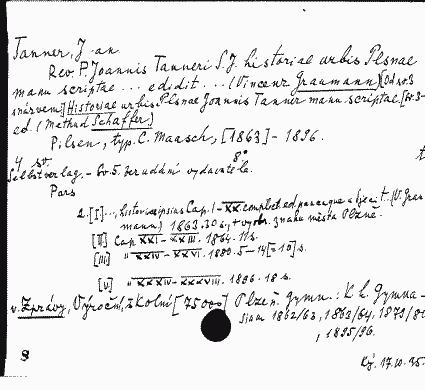 Tanner, J-an
Rev. P. Joannis Tanneri S.J. historiae urbis Plsnae
manu scriptae ... edidit ... (Vincenz Graumann) [Od sv. 3
s názvem:] Historiae urbis Plsnae Joannis Tanner manu scriptae. [Sv. 3-
ed. (Method Schaffer)]
Pilsen, typ. C. Maasch, [1863] - 1896.
4 sv. 8°
Selbstverlag. - Sv. 5. bez udání vydavatele.
Pars
1. [I] ..., historiae ipsius Cap. I - XX complet. ed. (V. Grau
mann) 1863. 30 s., + vyobr. znaku města Plzně.
[II] Cap XXI - XXIII. 1864. 11 s.
[III] " XXIV - XXVI. 1880. 5 - 14 [- 15] s.
[V] " XXXIV - XXXVIII. 1896. 18 s.
v. Zprávy, Výroční, školní [75000] Plzeň. gymn.: K. k. Gymna-
sium 1862/63, 1863/64, 1879/80
, 1895/96.
8
Ký. 17.10.35.